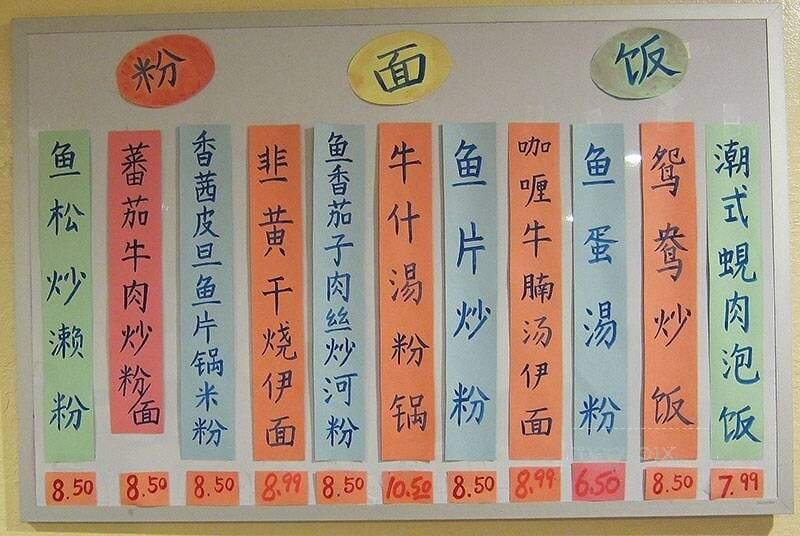 粉
面
饭
鱼松炒濑粉
8.50
蕃茄牛肉炒粉面
8.50
香茜皮旦鱼片锅米粉
8.50
韭黄干烧伊面
8.99
鱼香茄子肉丝炒河粉
8.50
牛什湯粉锅
10.50
鱼片炒粉
8.50
咖喱牛腩汤伊面
8.99
鱼蛋湯粉
6.50
鸳鸯炒饭
8.50
潮式蜆肉泡饭
7.99